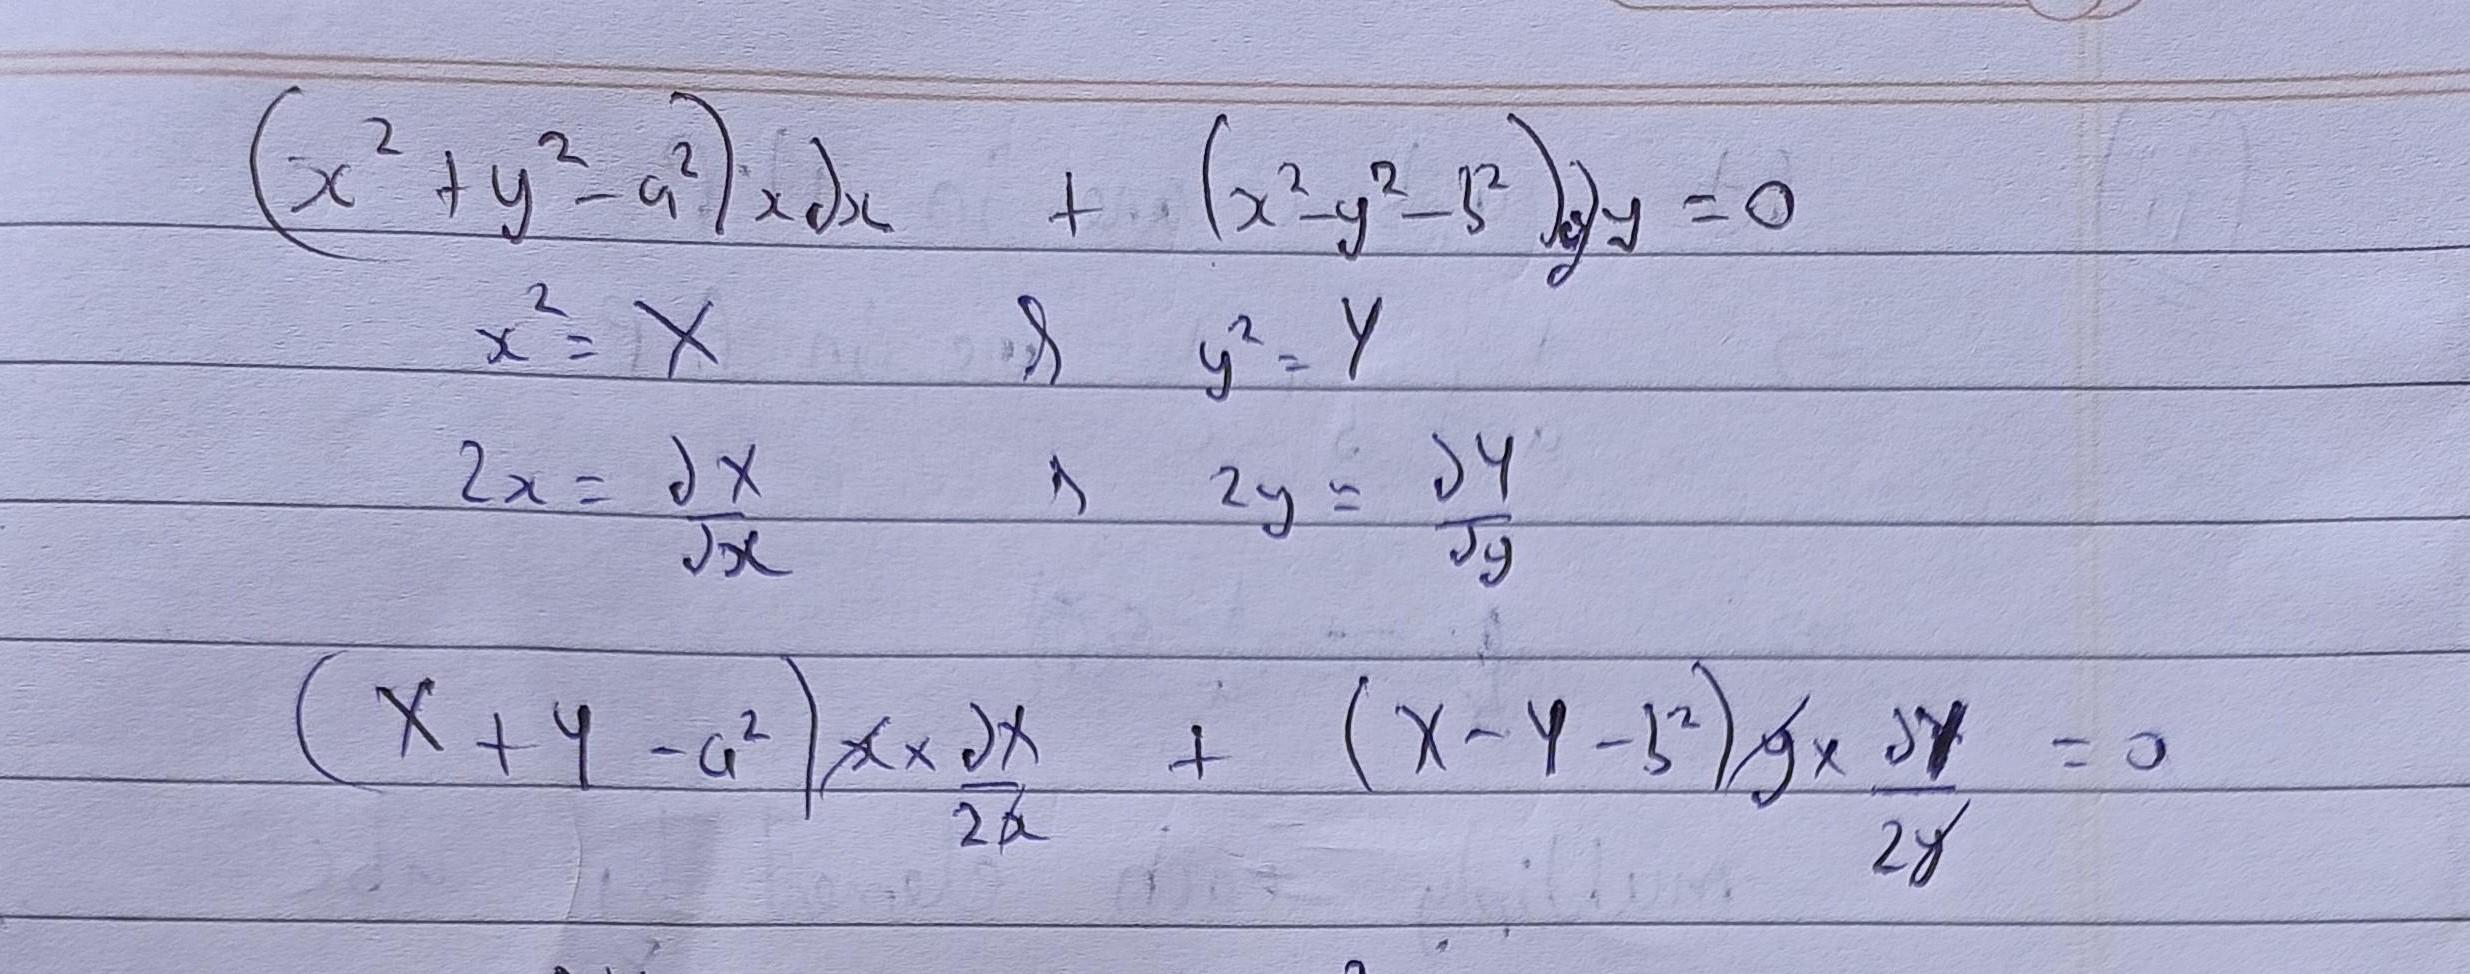 (x² + y² - a²) x dx + (x² - y² - b²) y dy = 0
x² = X & y² = Y
2x = dX/dx & 2y = dY/dy
(X + Y - a²) x × dX/2x + (X - Y - b²) y × dY/2y = 0